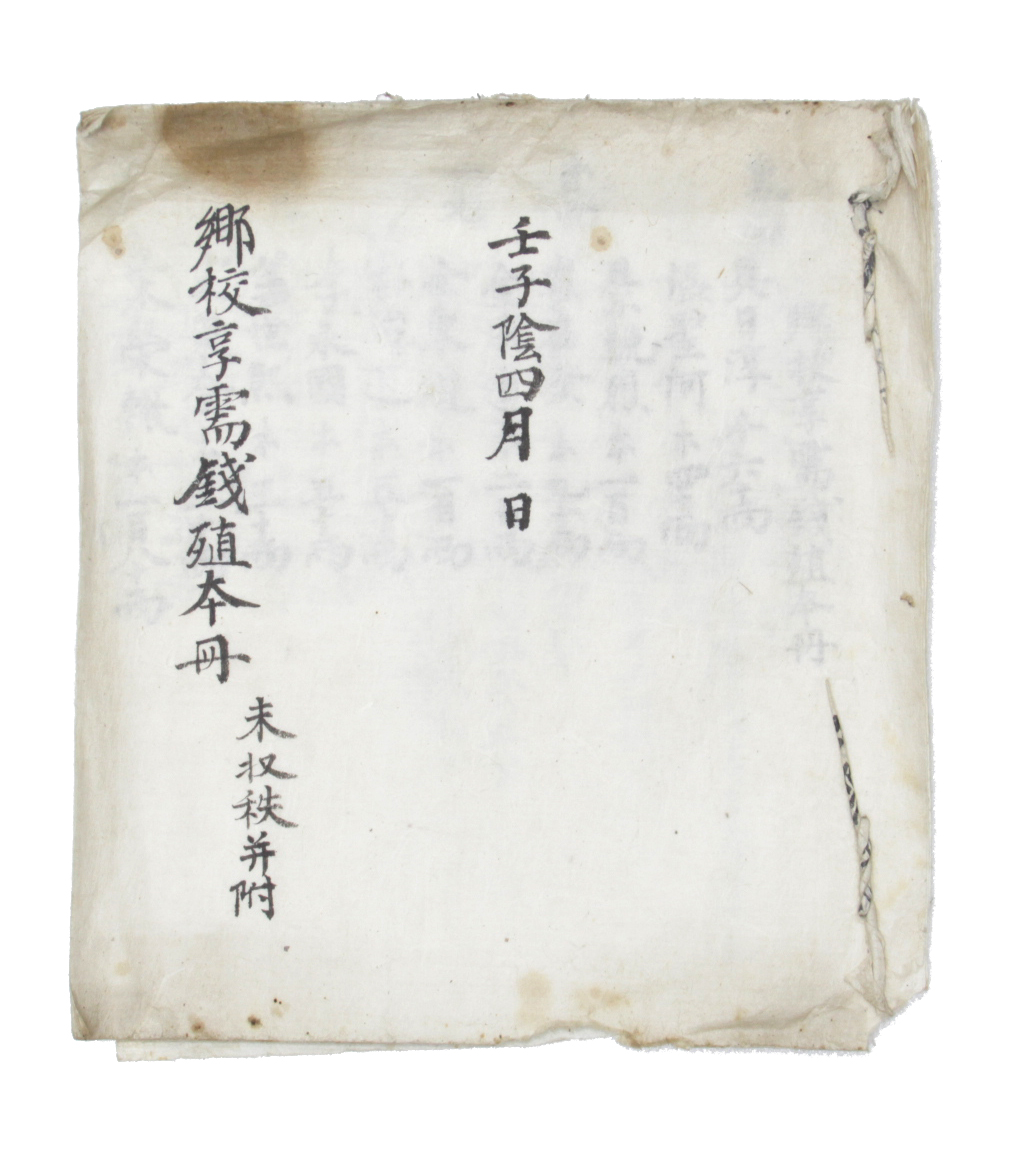 壬子陰四月 日
鄕校享需錢殖本冊
未収秩并附